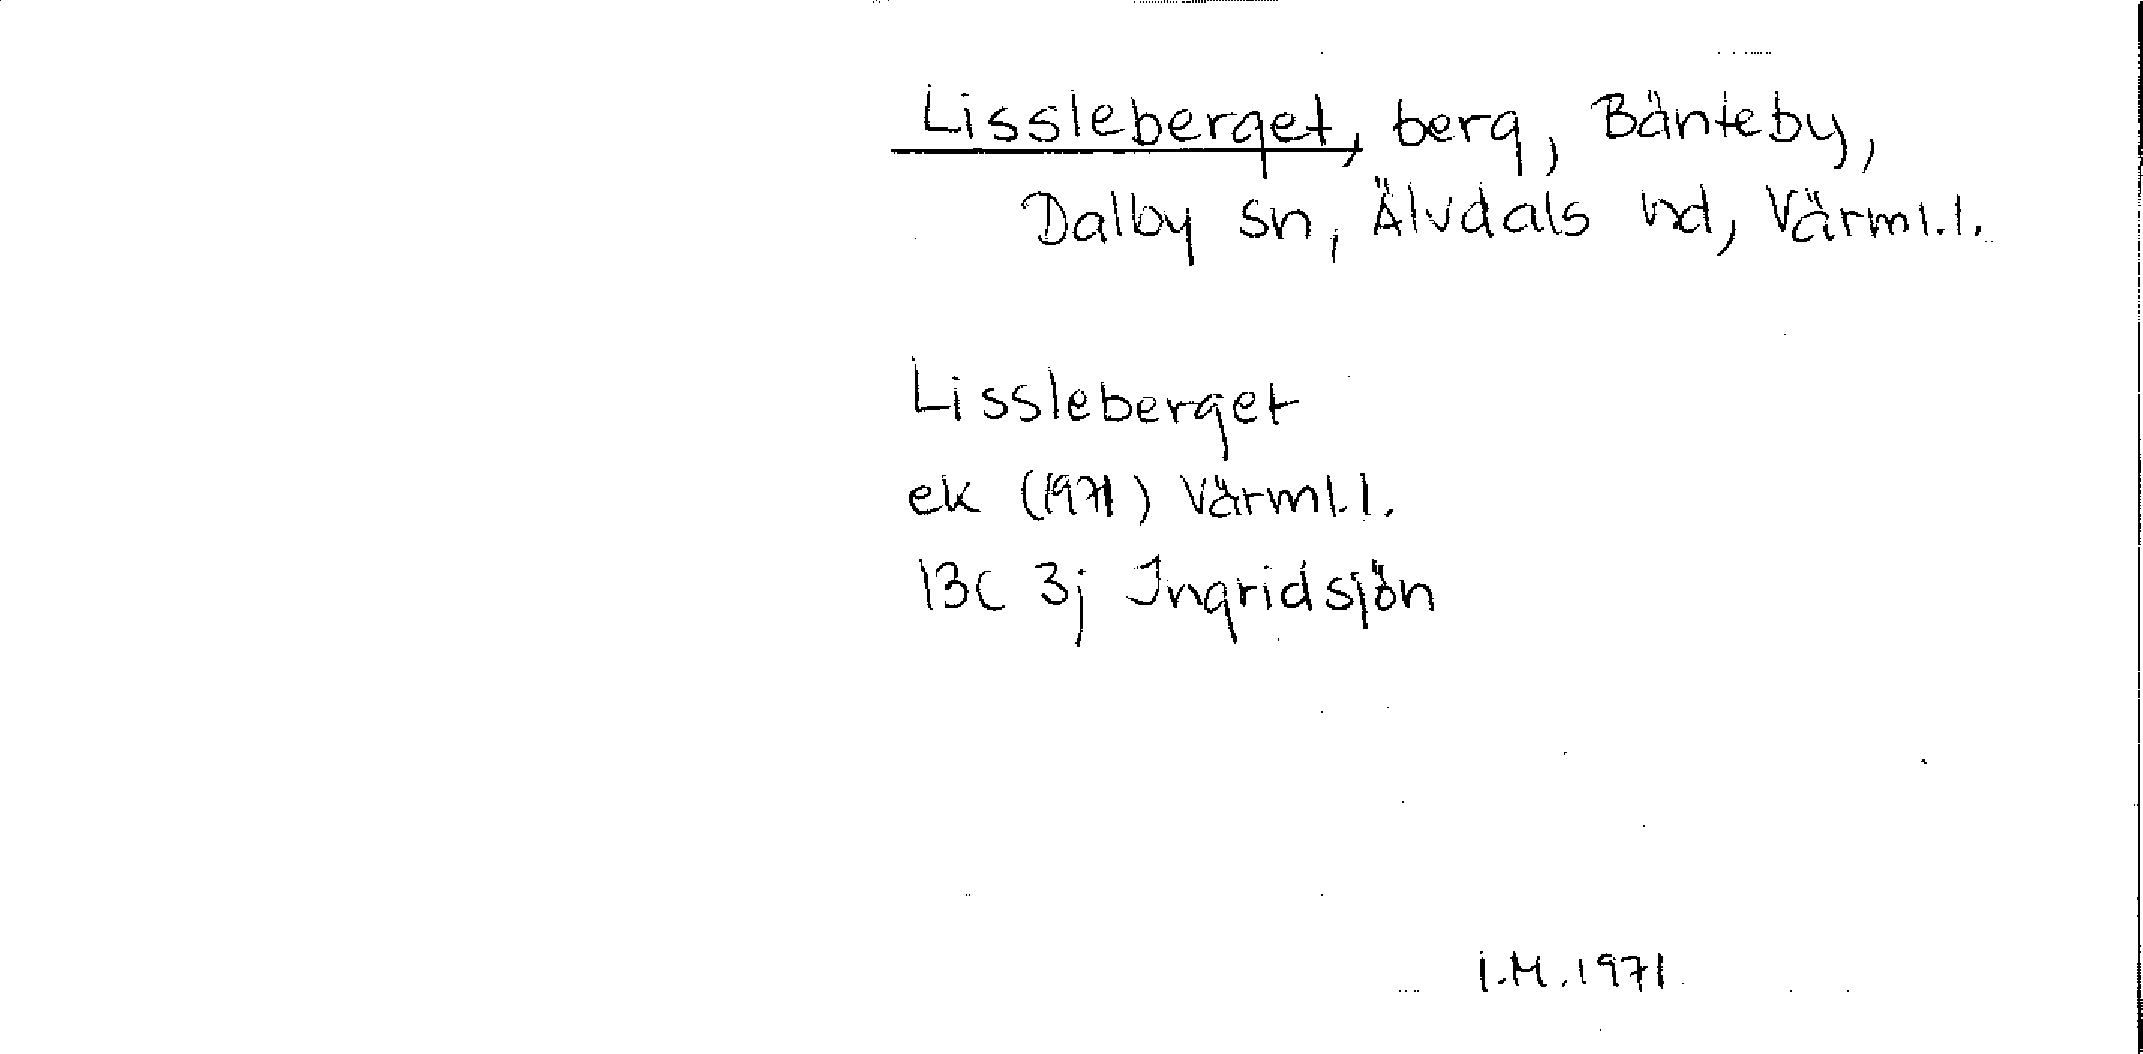 Lissleberget, berg, Bänteby,
Dalby sn, Älvdals hd, Värml.l.
Lissleberget
ek (1971) Värml.l.
13C 3j Ingridsjön
I.M.1971